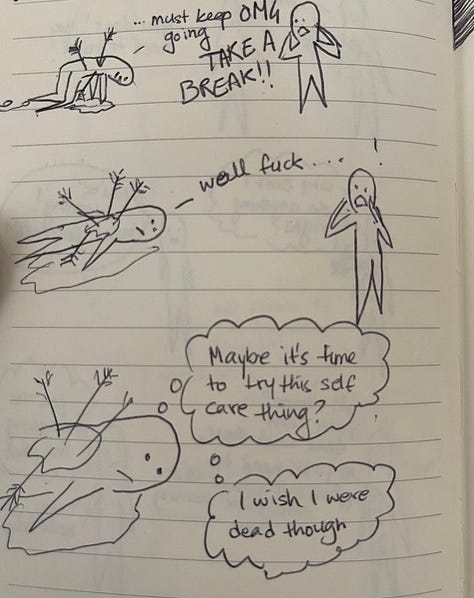 ... must keep
going
OMG
TAKE A
BREAK!!
well fuck ...
!
Maybe it's time
to try this self
care thing?
I wish I were
dead though